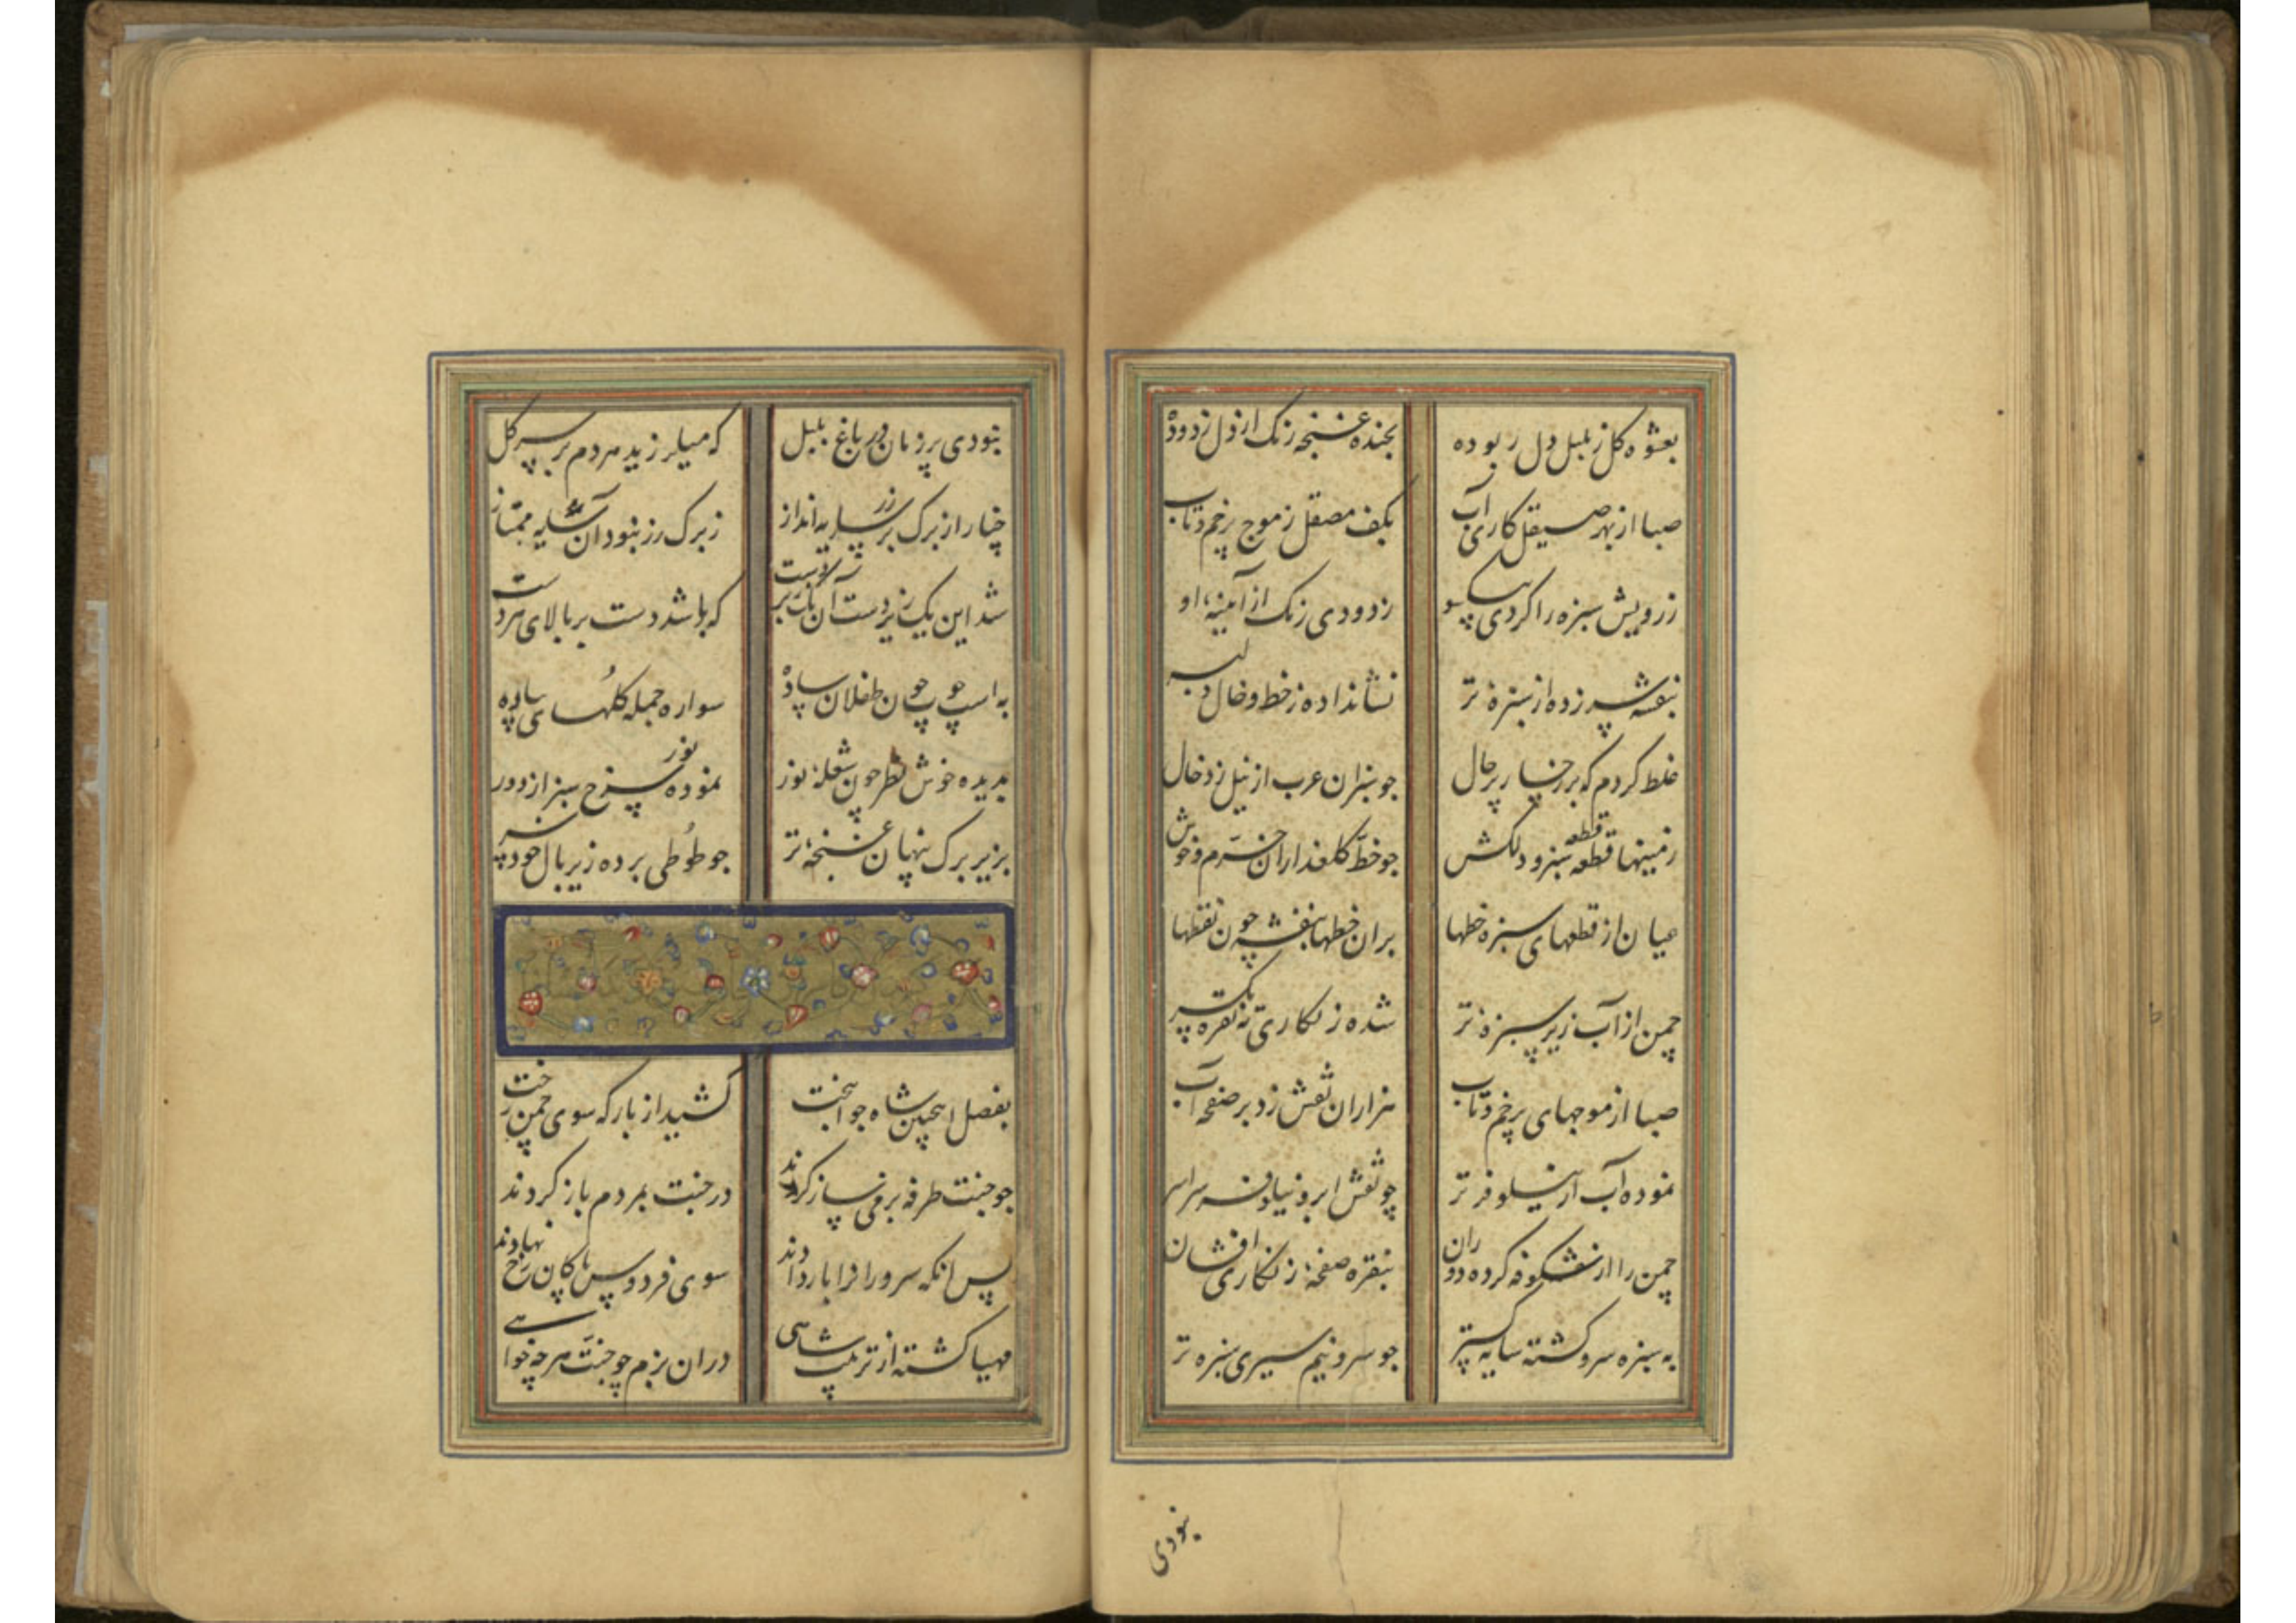 بعشوه کل ز بلبل دل ربوده
بخنده غنچه زنک از دل زدوده
صبا از بهر صیقل کاری آب
بکف مصقل ز موج پرخم و تاب
ز رویش سبزه را کردی بیکسو
زدودی زنک از آیینهٔ او
بنفشه سر زده از سبزهٔ تر
نشانداده ز خط و خال دلبر
غلط کردم که بر رخسار پرحال
جو سبزان عرب از نیل زد خال
زمینها قطعه قطعه سبز و دلکش
جو خط کلعذاران خرم و خوش
عیان از قطعهای سبزه خطها
بران خطها بنفشه چون نقطها
چمن از آب زیر سبزهٔ تر
شده زنکاری ته نقره یکسر
صبا از موجهای پرخم و تاب
هزاران نقش زد بر صفحه آب
نموده آب از نیلوفر تر
چو نقش ابر و بنیاد سراسر
چمن را از شکوفه کرده دوران
بنقره صفحهٔ زنکاری افشان
به سبزه سرو کشته سایه کستر
جو سرو نیم سیری سبزه تر
نبودی
نبودی پر زمان در باغ بلبل
که میلرزید مردم بر سر کل
چنار از برک بر رز سایه انداز
ز برک رز نبود آن سایه ممتاز
شد این یک زیردست آن یک زبردست
که باشد دست بر بالای هر دست
به اسپ جو چون طفلان ساده
سواره جمله کلهای پیاده
بدیده خوش نظر چون شعلهٔ نور
نموده سرخ سبز از دور
بزیر برک پنهان غنچهٔ تر
جو طوطی برده زیر بال خود سر
بفصل اینچنین شاه جوانبخت
کشید از بارکه سوی چمن رخت
جو جنت طرفه بزمی ساز کردند
در جنت بمردم باز کردند
پس آنکه سرو را بار دادند
سوی فردوس پاکان رخ نهادند
مهیا کشته از ترتیب شاهی
دران بزم چو جنت هرچه خواهی